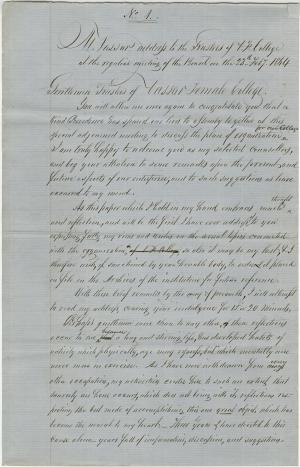 No 1.
M. Vassar's address to the Trustees of V. F. College
at the regular meeting of the Board on the 23d Feby. 1864
Gentlemen Trustees of Vassar Female College.
You will allow me once again to congratulate you that a
kind Providence has spared our lives to assemble together at this
for our College
special adjourned meeting, to discuss the plan of organization
I am truly happy to address you as my selected counsellors,
and beg your attention to some remarks upon the present and
future aspects of our enterprise, and to such suggestions as have
occurred to my mind.
thought
As this paper which I hold in my hand contains much
and reflection, and will be the last I have ever address to you
expressing fully my views and wishes on the several topics connected
with the organization, so also it may be my last, & I
therefore wish, if sanctioned by your honorable body, to order it placed
on file in the Archives of the institution for future reference.
With these brief remarks by the way of preamble, I will attempt
to read my address, craving your indulgence for 15 or 20 minutes.
Perhaps gentlemen more than to any other, these reflections
because
occur to me, a long and stirring life, has developed habits of
activity which physically, age may repress, but which mentally were
never more in exercise. As I have now withdrawn from
every
other occupation, my advancing under you to such an extent that
scarcely an hour occurs, which does not bring with it reflections res-
pecting the best mode of accomplishing this one great object, which has
become the nearest to my heart. Three years I have devoted to this
cause alone—years full of information, discipline, and suggestion.